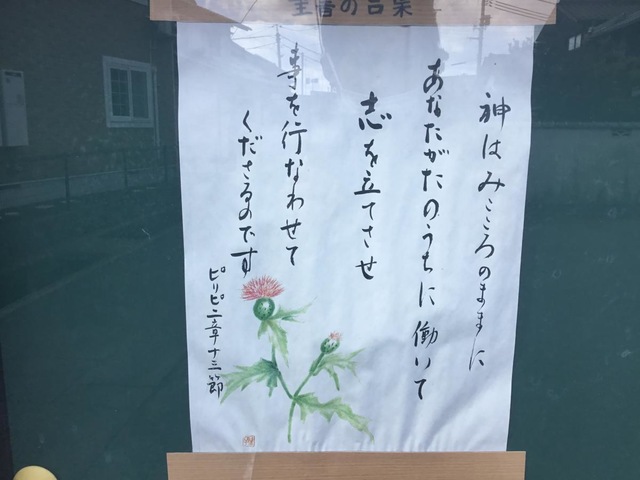 聖書の言葉
神はみこころのままに
あなたがたのうちに働いて
志を立てさせ
事を行なわせて
くださるのです
ピリピ二章十三節